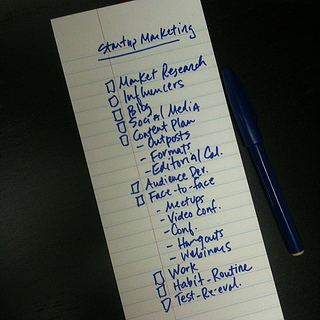 Startup Marketing
Market Research
Influencers
Blog
Social Media
Content Plan
- Outposts
- Formats
- Editorial Cal.
Audience Dev.
Face-to-face
- Meetups
- Video conf.
- Conf.
- Hangouts
- Webinars
Work
Habit-Routine
Test-Re-eval.